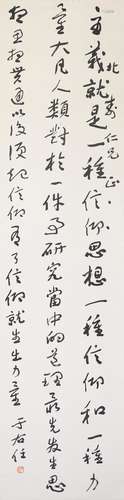 主義就是一種信仰思想一種信仰和一種力
量大凡人類對於一件事研究當中的道理最先發生思
想思想貫通以後便起信仰有了信仰就生出力量
仁兄正
于右任